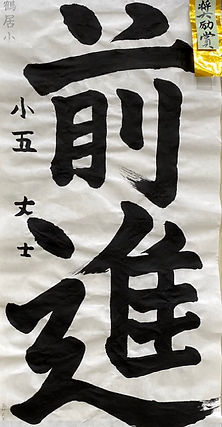 前進
小五 丈士
鶴居小
奨励賞